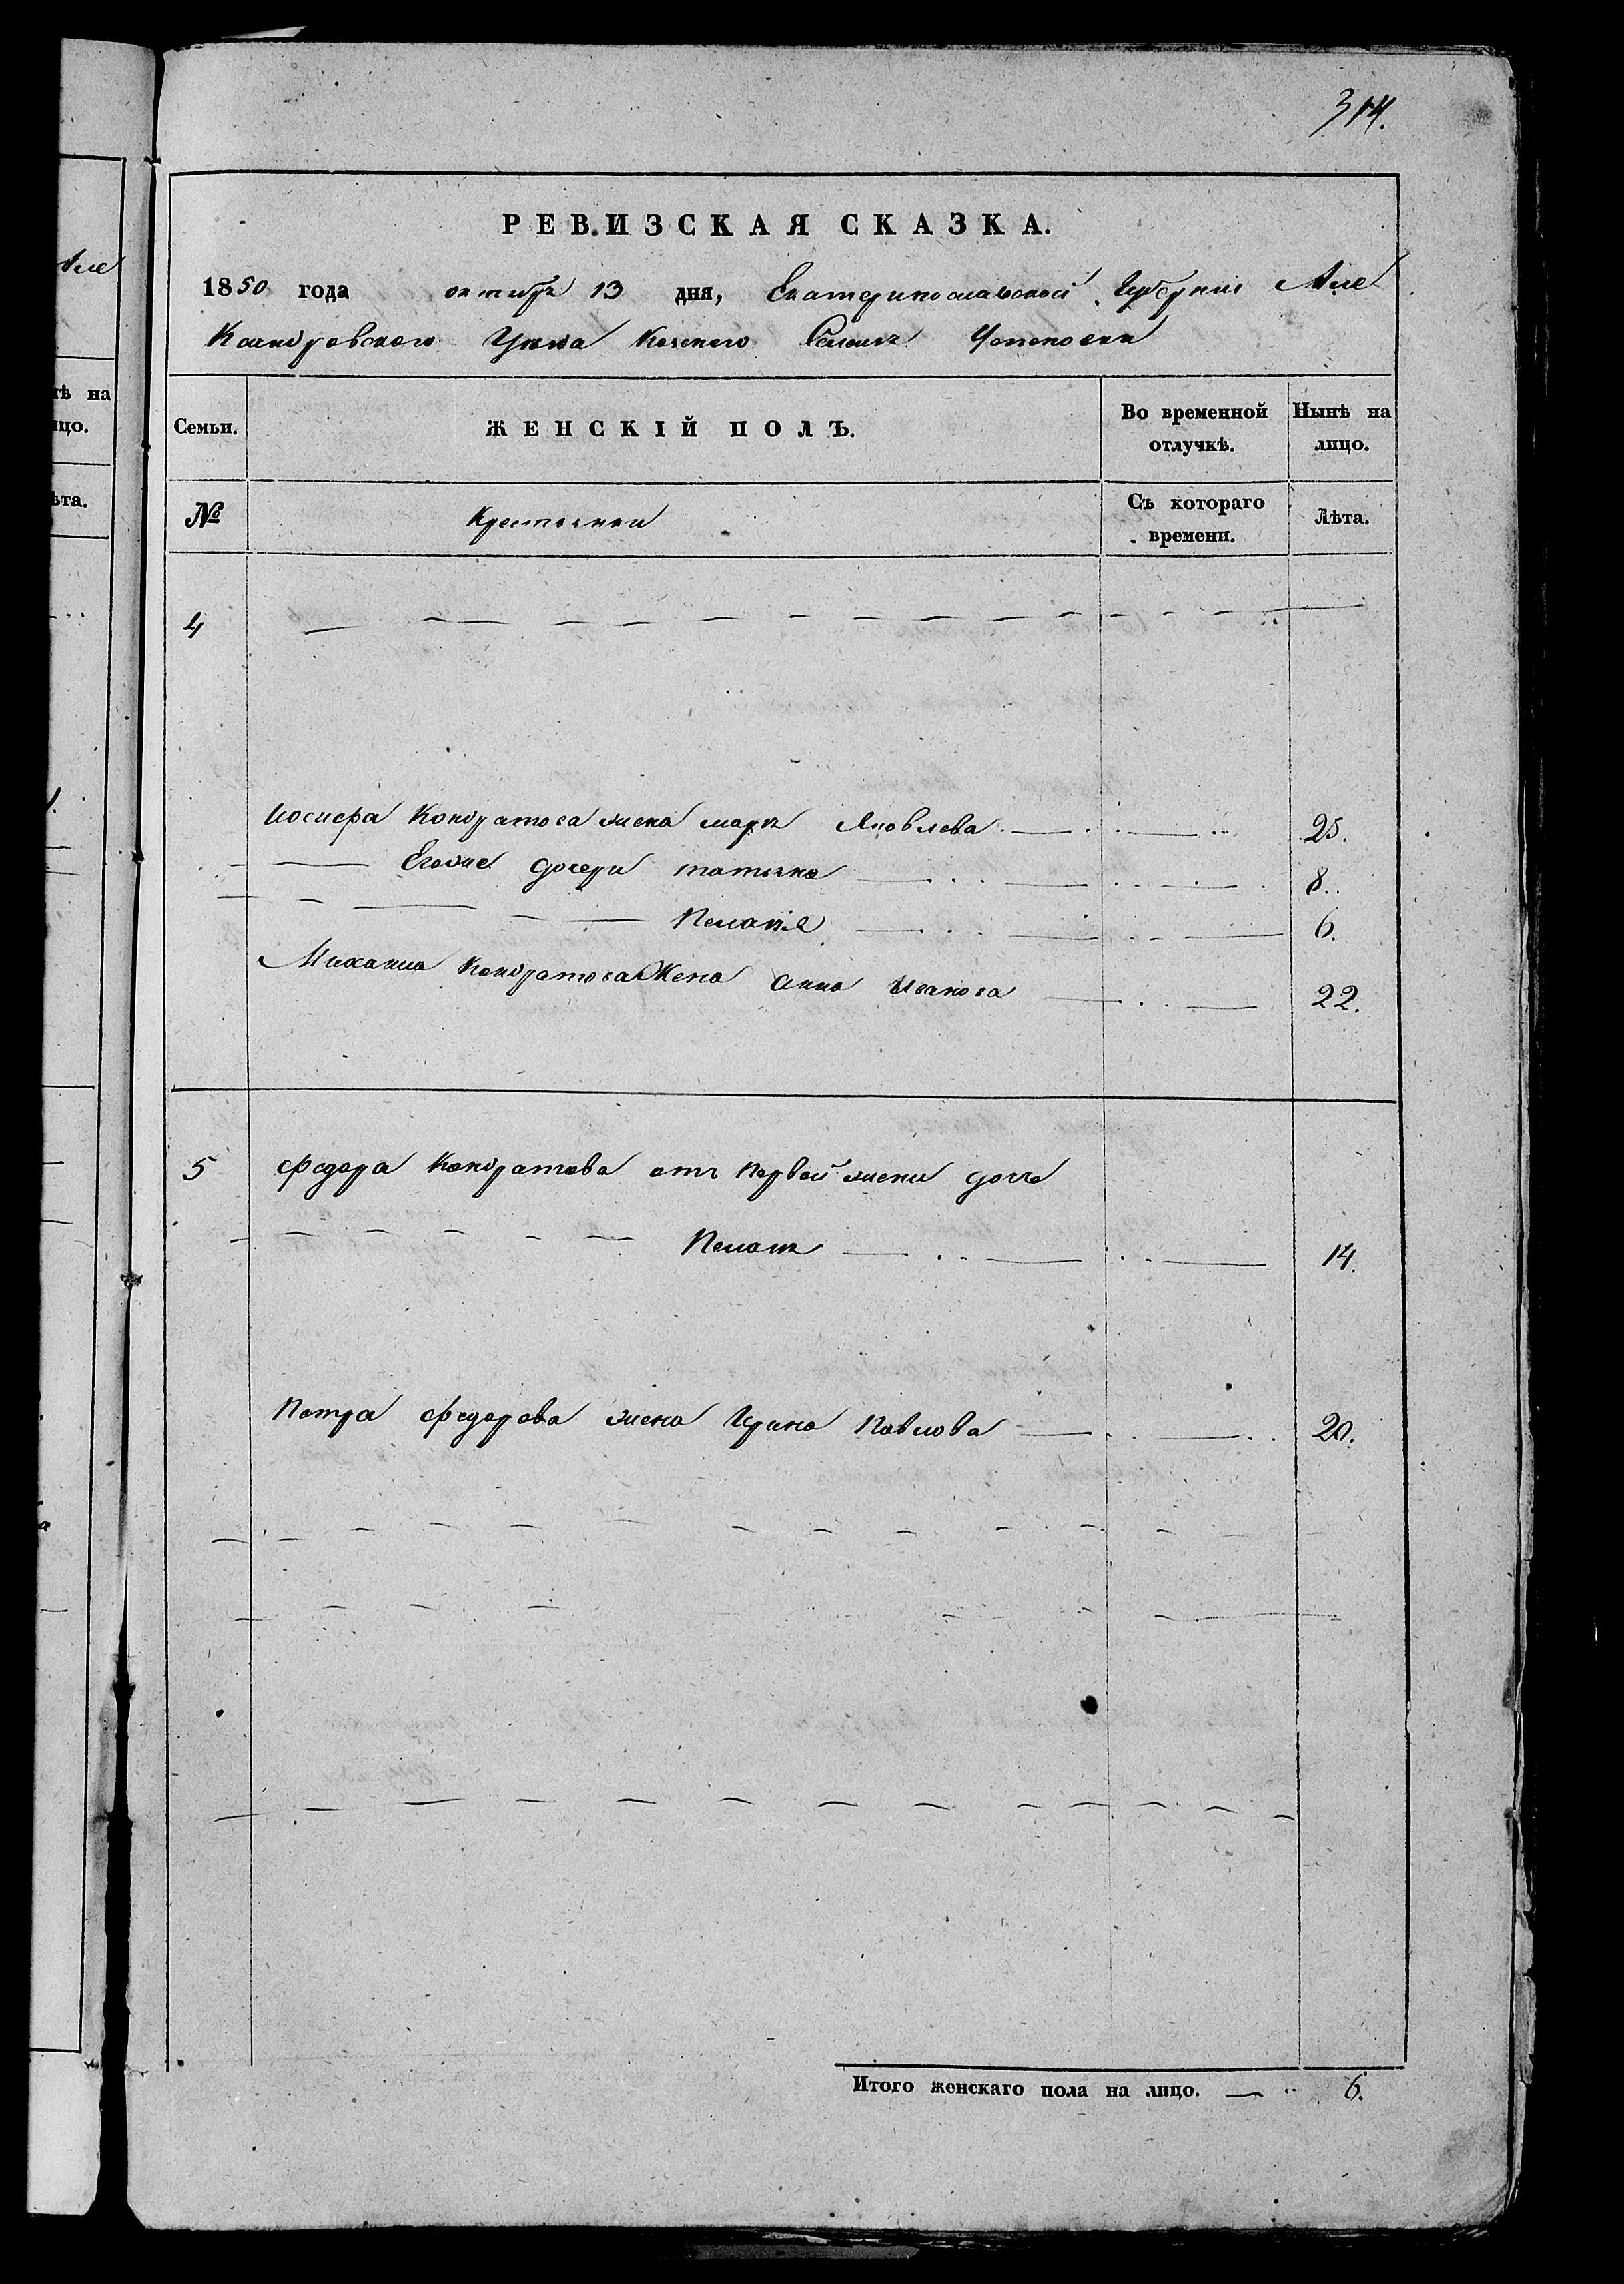 314.
РЕВИЗСКАЯ СКАЗКА.
1850 года октября 13 дня, Екатеринославской Губерніи Але
ксандровского Уезда Казеного Селения
Семьи.
ЖЕНСКІЙ ПОЛЪ.
Во временной отлучкѣ.
Нынѣ на лицо.
№
Крестьянки
Съ котораго времени.
Лѣта.
4
Иосифа Кондратова жена марья Яковлева 25.
Егоже дочери татьяна 8.
Пелагия 6.
Михаила Кондратова Жена анна Иванова 22.
5 Федора Кондратова отъ Первой жены дочь
Пелагея 14.
Петра Федорова жена Ирина Павлова 20.
Итого женскаго пола на лицо. 6.
Але
нѣ на
ицо.
ѣта.